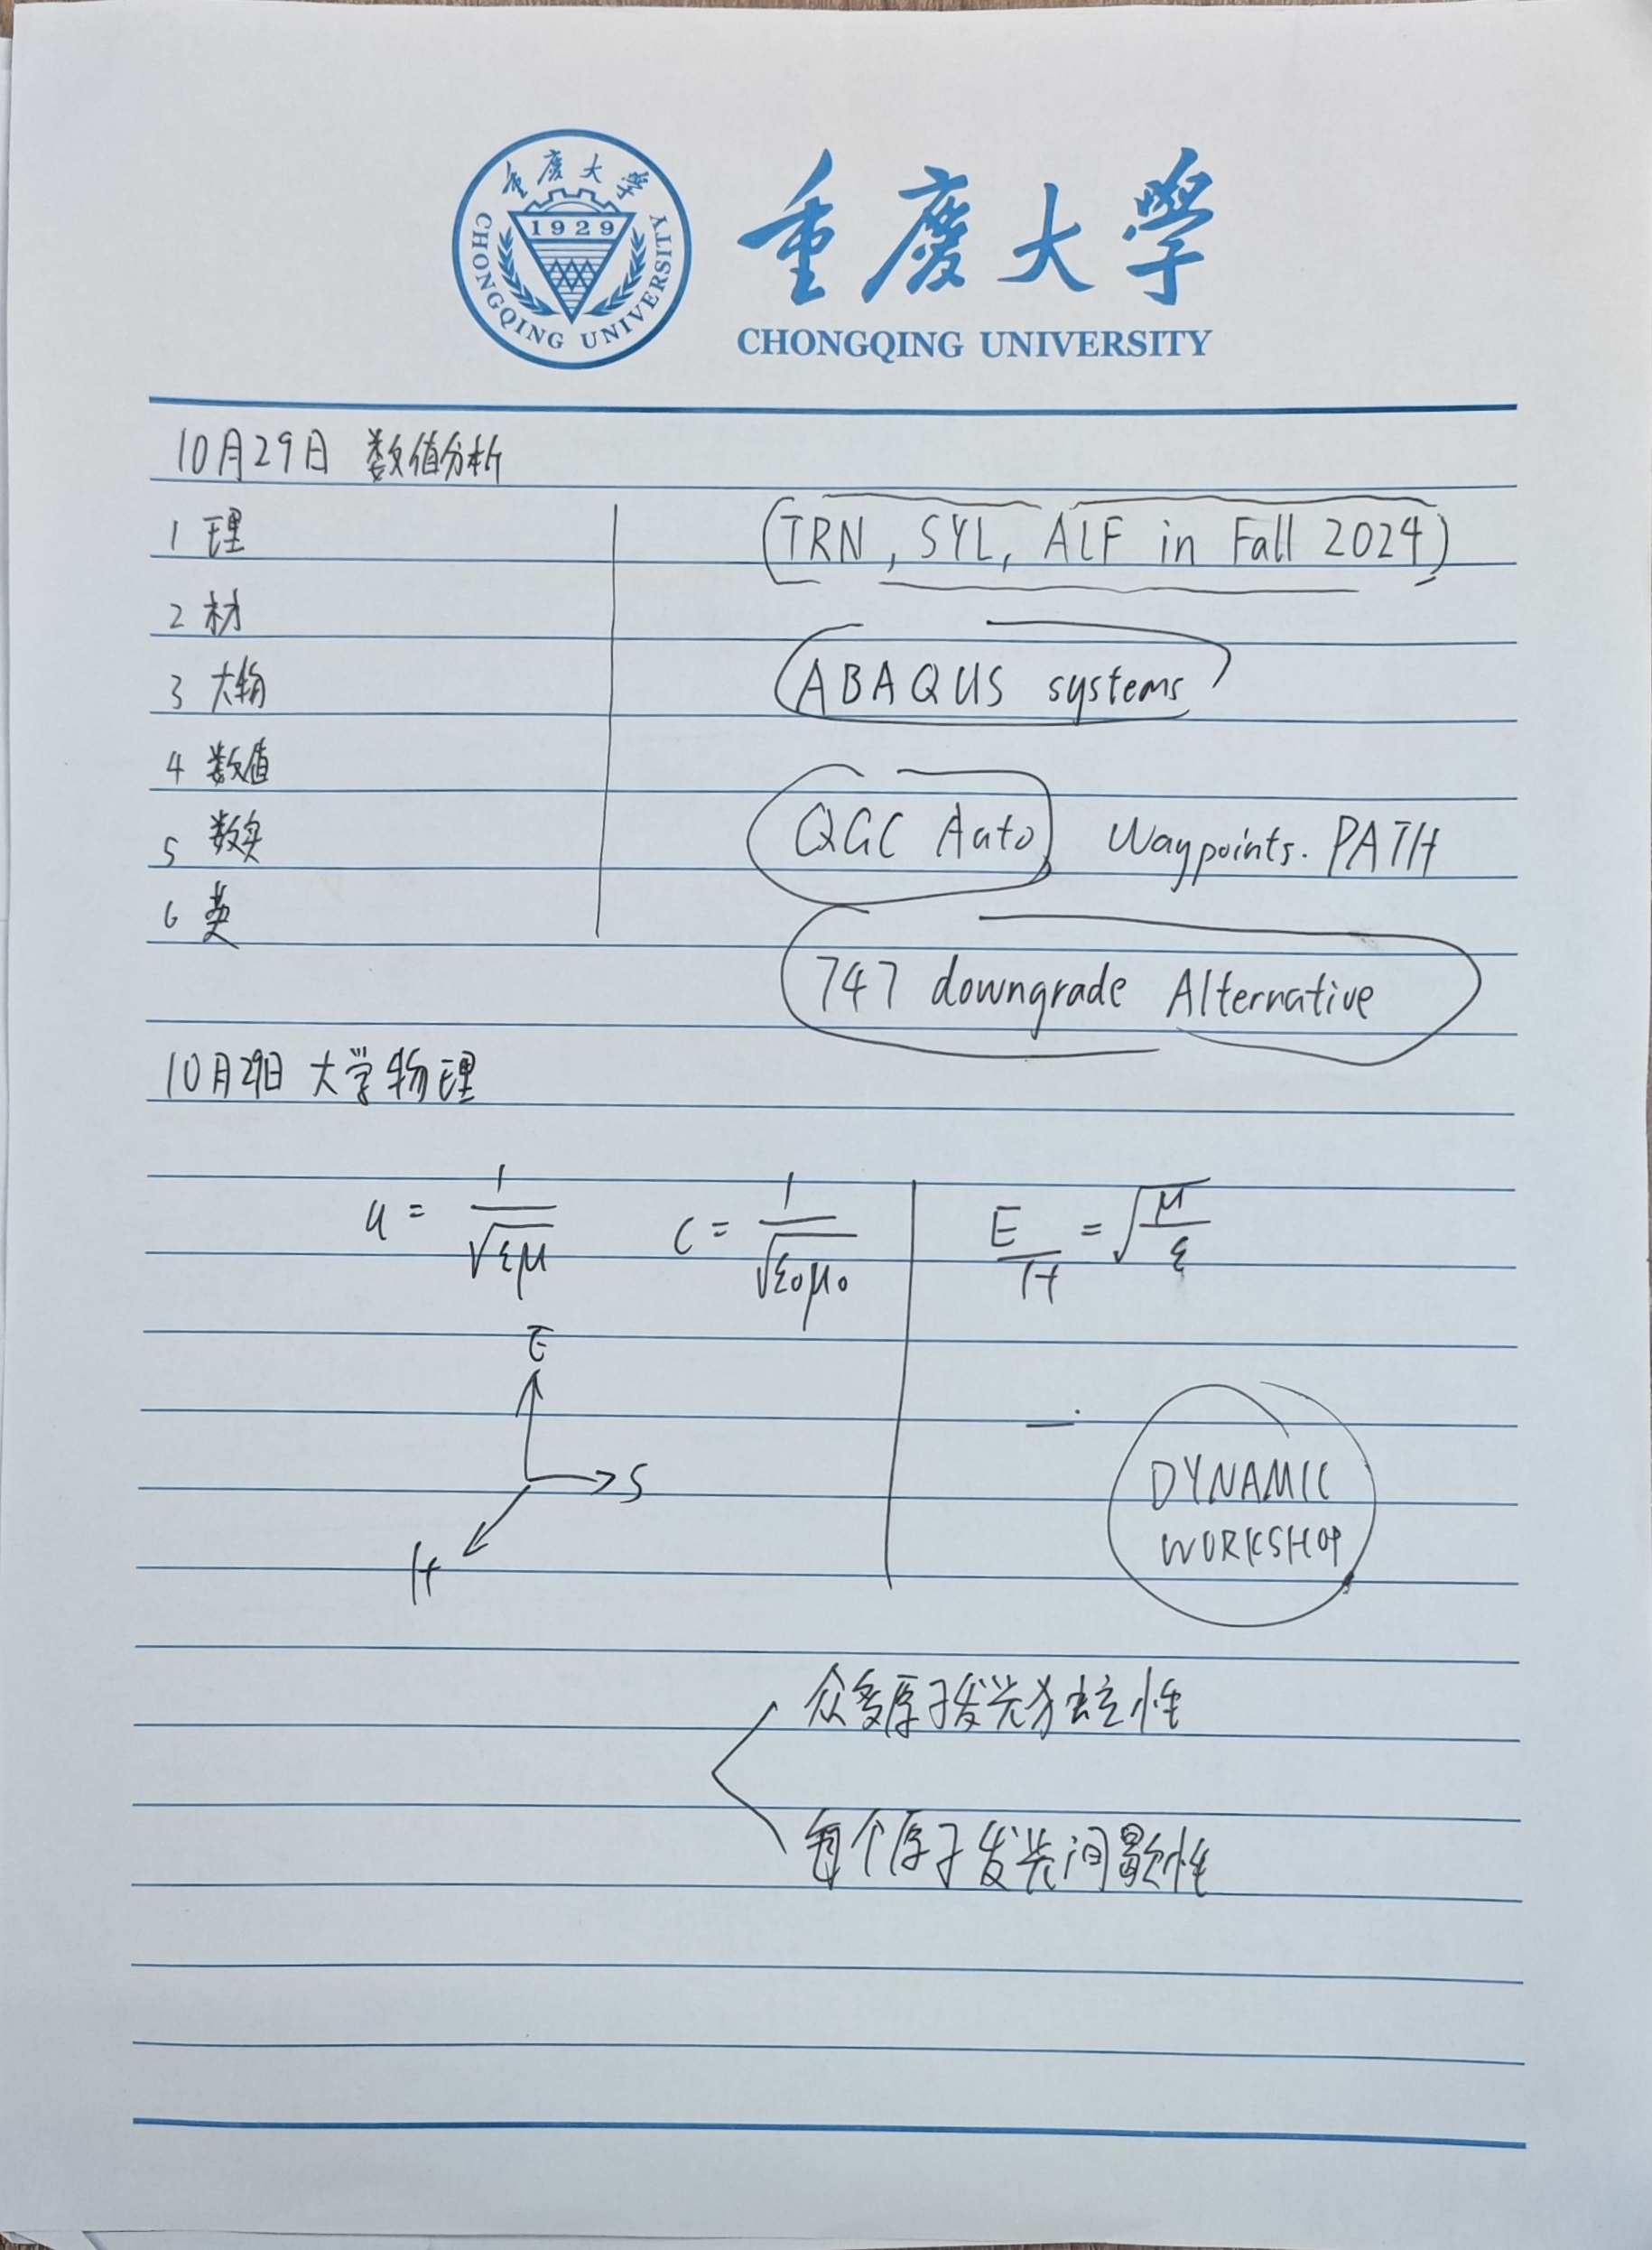 重庆大学
1929
CHONGQING UNIVERSITY
重慶大學
CHONGQING UNIVERSITY
10月29日 数值分析
1 理
2 材
3 大物
4 数值
5 数实
6 英
(TRN, SYL, ALF in Fall 2024)
ABAQUS systems
QGC Auto Waypoints. PATH
747 downgrade Alternative
10月29日 大学物理
u = 1/√εμ
C = 1/√ε₀μ₀
E/H = √μ/ε
E
S
H
DYNAMIC
WORKSHOP
众多原子发光独立性
每个原子发光间歇性